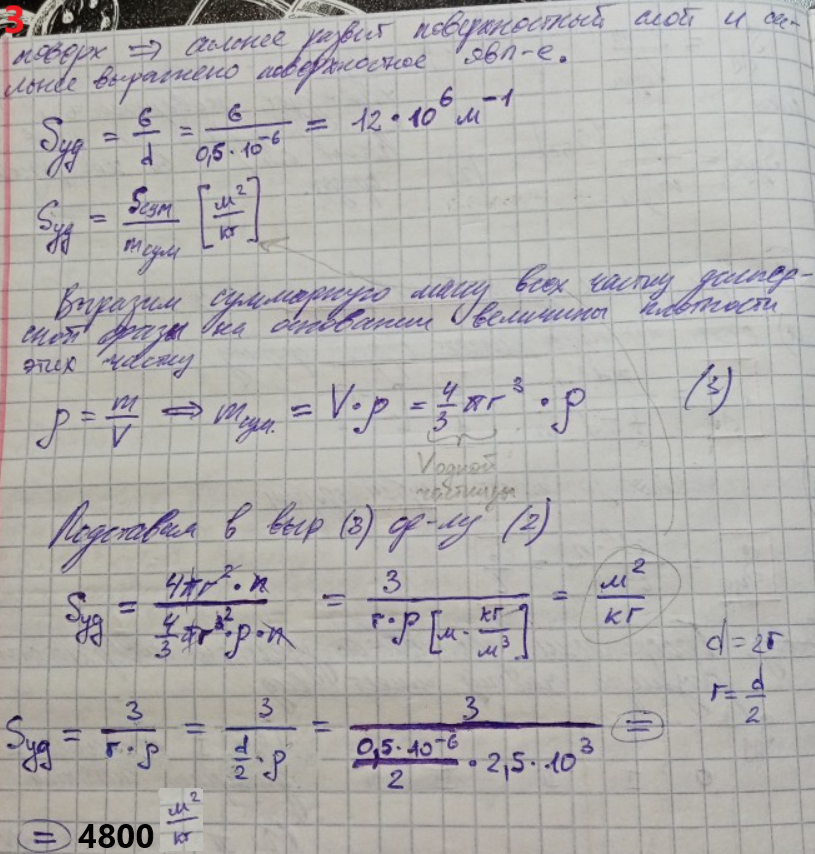 3
поверх ⇒ сильнее развит поверхностный слой и си-
льнее выражено поверхностное явл-е.
Sуд = 6/d = 6/(0,5·10⁻⁶) = 12·10⁶ м⁻¹
Sуд = Sсум/mсум [м²/кг]
Выразим суммарную массу всех частиц дисперс-
ной фазы на основании величины плотности
этих частиц
ρ = m/V ⇒ mсум. = V·ρ = 4/3 πr³ · ρ (3)
Vодной
частицы
Подставим в выр (3) ф-лу (2)
Sуд = (4πr²·n)/(4/3 πr³·ρ·n) = 3/(r·ρ [м·кг/м³]) = м²/кг
d = 2r
r = d/2
Sуд = 3/(r·ρ) = 3/(d/2·ρ) = 3/((0,5·10⁻⁶)/2 · 2,5·10³) =
= 4800 м²/кг